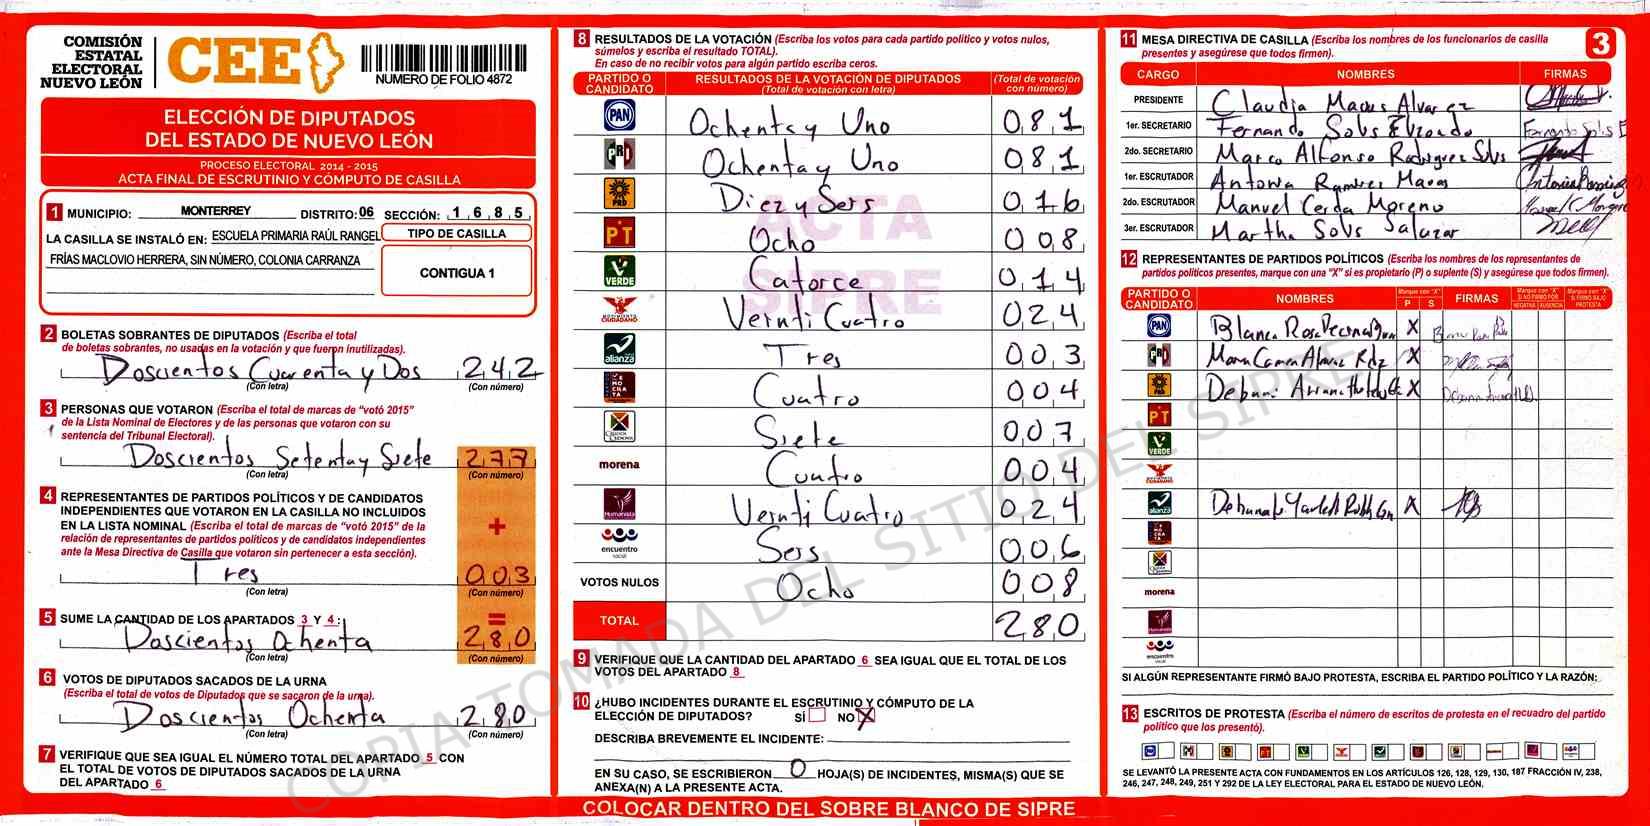 COMISIÓN
ESTATAL
ELECTORAL
NUEVO LEÓN
CEE
NUMERO DE FOLIO 4872
ELECCIÓN DE DIPUTADOS
DEL ESTADO DE NUEVO LEÓN
PROCESO ELECTORAL 2014 - 2015
ACTA FINAL DE ESCRUTINIO Y CÓMPUTO DE CASILLA
1 MUNICIPIO: MONTERREY DISTRITO: 06 SECCIÓN: 1 6 8 5
LA CASILLA SE INSTALÓ EN: ESCUELA PRIMARIA RAÚL RANGEL
FRÍAS MACLOVIO HERRERA, SIN NÚMERO, COLONIA CARRANZA
TIPO DE CASILLA
CONTIGUA 1
2 BOLETAS SOBRANTES DE DIPUTADOS (Escriba el total
de boletas sobrantes, no usadas en la votación y que fueron inutilizadas).
Doscientos Cuarenta y Dos 242
(Con letra) (Con número)
3 PERSONAS QUE VOTARON (Escriba el total de marcas de “votó 2015”
de la Lista Nominal de Electores y de las personas que votaron con su
sentencia del Tribunal Electoral).
Doscientos Setenta y Siete 277
(Con letra) (Con número)
4 REPRESENTANTES DE PARTIDOS POLÍTICOS Y DE CANDIDATOS
INDEPENDIENTES QUE VOTARON EN LA CASILLA NO INCLUIDOS
EN LA LISTA NOMINAL (Escriba el total de marcas de “votó 2015” de la
relación de representantes de partidos políticos y de candidatos independientes
ante la Mesa Directiva de Casilla que votaron sin pertenecer a esta sección).
+
Tres 003
(Con letra) (Con número)
5 SUME LA CANTIDAD DE LOS APARTADOS 3 Y 4: =
Doscientos Ochenta 280
(Con letra) (Con número)
6 VOTOS DE DIPUTADOS SACADOS DE LA URNA
(Escriba el total de votos de Diputados que se sacaron de la urna).
Doscientos Ochenta 280
(Con letra) (Con número)
7 VERIFIQUE QUE SEA IGUAL EL NÚMERO TOTAL DEL APARTADO 5 CON
EL TOTAL DE VOTOS DE DIPUTADOS SACADOS DE LA URNA
DEL APARTADO 6
8 RESULTADOS DE LA VOTACIÓN (Escriba los votos para cada partido político y votos nulos,
súmelos y escriba el resultado TOTAL).
En caso de no recibir votos para algún partido escriba ceros.
PARTIDO O CANDIDATO RESULTADOS DE LA VOTACIÓN DE DIPUTADOS (Total de votación con letra) (Total de votación con número)
PAN Ochenta y Uno 081
PRI Ochenta y Uno 081
PRD Diez y Seis 016
PT Ocho 008
VERDE Catorce 014
MOVIMIENTO CIUDADANO Veinti Cuatro 024
alianza Tres 003
DEMOCRATA Cuatro 004
CRUZADA CIUDADANA Siete 007
morena Cuatro 004
Humanista Veinti Cuatro 024
encuentro social Seis 006
VOTOS NULOS Ocho 008
TOTAL 280
ACTA
SIPRE
9 VERIFIQUE QUE LA CANTIDAD DEL APARTADO 6 SEA IGUAL QUE EL TOTAL DE LOS
VOTOS DEL APARTADO 8
10 ¿HUBO INCIDENTES DURANTE EL ESCRUTINIO Y CÓMPUTO DE LA
ELECCIÓN DE DIPUTADOS? SÍ NO X
DESCRIBA BREVEMENTE EL INCIDENTE:
EN SU CASO, SE ESCRIBIERON 0 HOJA(S) DE INCIDENTES, MISMA(S) QUE SE
ANEXA(N) A LA PRESENTE ACTA.
COLOCAR DENTRO DEL SOBRE BLANCO DE SIPRE
COPIA TOMADA DEL SITIO DEL SIPRE
11 MESA DIRECTIVA DE CASILLA (Escriba los nombres de los funcionarios de casilla
presentes y asegúrese que todos firmen).
3
CARGO NOMBRES FIRMAS
PRESIDENTE Claudia Alvarez
1er. SECRETARIO Fernando Solis Elizondo
2do. SECRETARIO Marco Alfonso Rodriguez Solis
1er. ESCRUTADOR Antonia Ramirez
2do. ESCRUTADOR Manuel Cerda Moreno
3er. ESCRUTADOR Martha Solis Salazar
12 REPRESENTANTES DE PARTIDOS POLÍTICOS (Escriba los nombres de los representantes de
partidos políticos presentes, marque con una “X” si es propietario (P) o suplente (S) y asegúrese que todos firmen).
PARTIDO O CANDIDATO NOMBRES Marque con “X” P S FIRMAS Marque con “X” SI NO FIRMÓ POR NEGATIVA AUSENCIA Marque con “X” SI FIRMÓ BAJO PROTESTA
PAN Blanca Rosa X
PRI X
PRD X
PT
VERDE
alianza X
morena
encuentro social
SI ALGÚN REPRESENTANTE FIRMÓ BAJO PROTESTA, ESCRIBA EL PARTIDO POLÍTICO Y LA RAZÓN:
13 ESCRITOS DE PROTESTA (Escriba el número de escritos de protesta en el recuadro del partido
político que los presentó).
SE LEVANTÓ LA PRESENTE ACTA CON FUNDAMENTOS EN LOS ARTÍCULOS 126, 128, 129, 130, 187 FRACCIÓN IV, 238,
246, 247, 248, 249, 251 Y 292 DE LA LEY ELECTORAL PARA EL ESTADO DE NUEVO LEÓN.